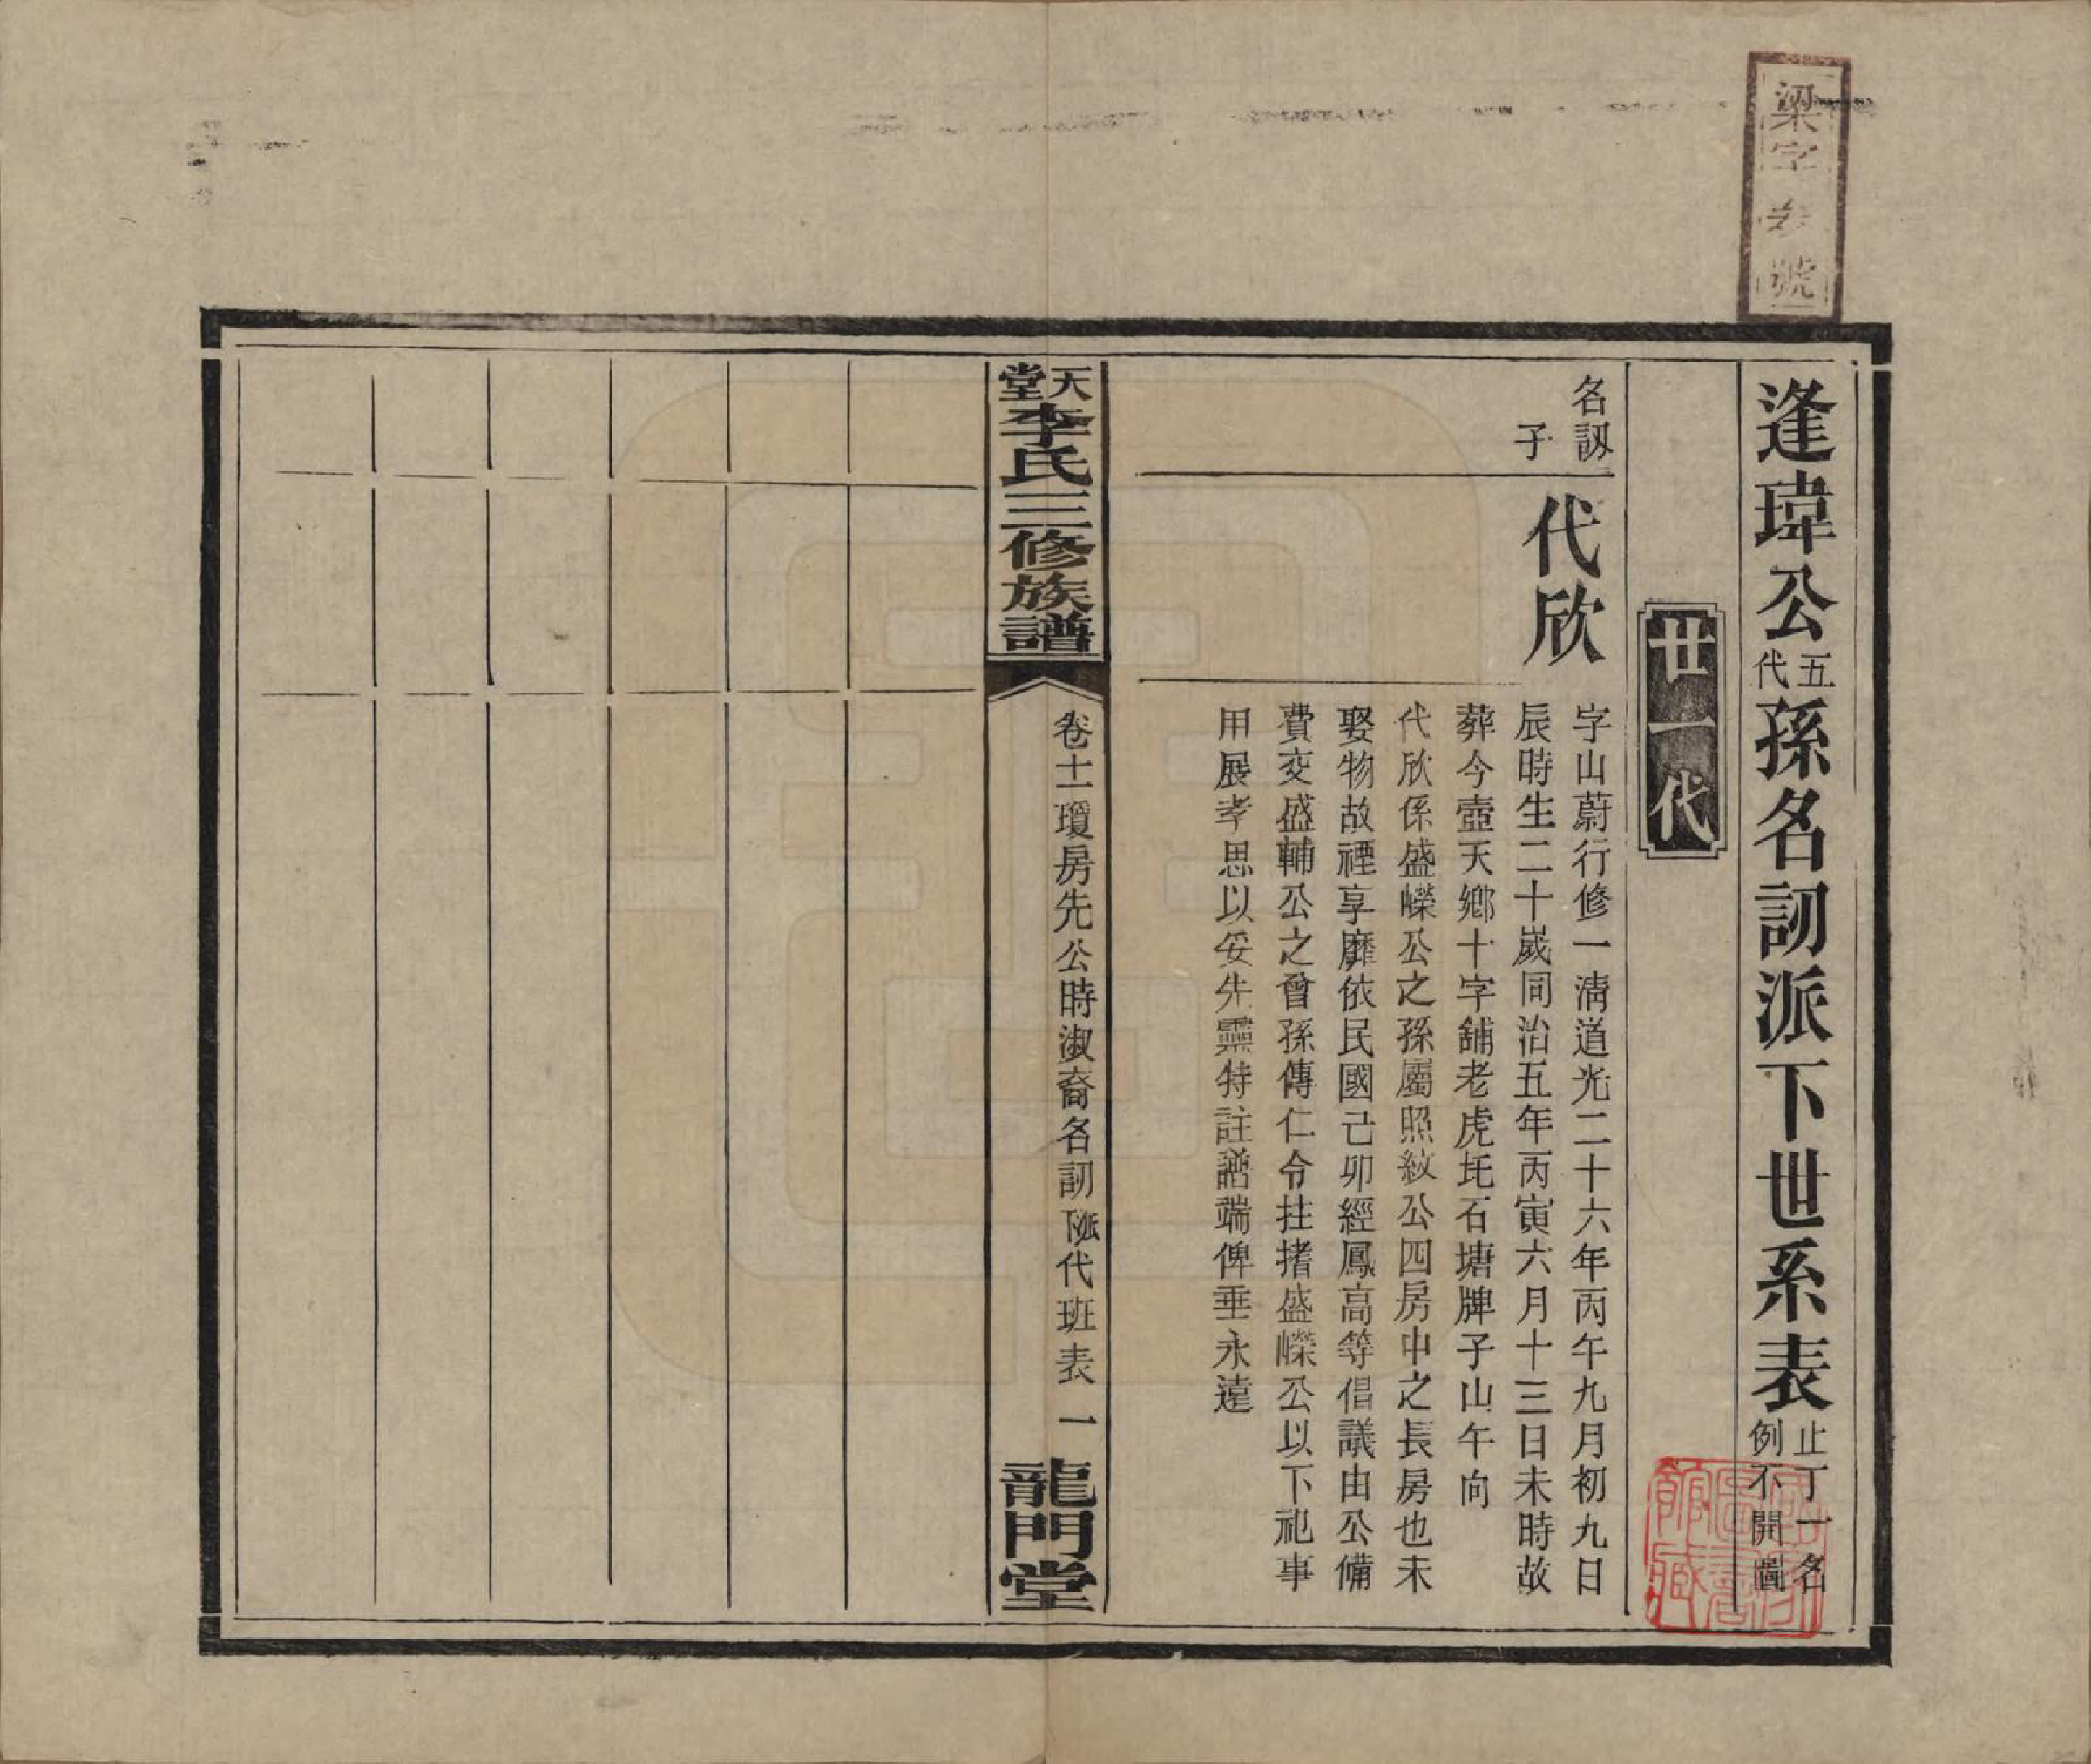 梁字叁號
逢瑋公五代孫名訒派下世系表止丁一名例不開圖
廿一代
名訒子
代欣
字山蔚行修一清道光二十六年丙午九月初九日
辰時生二十嵗同治五年丙寅六月十三日未時故
葬今壺天鄉十字舖老虎坉石塘牌子山午向
代欣係盛嶸公之孫屬照紋公四房中之長房也未
娶物故禋享靡依民國己卯經鳳高等倡議由公備
費交盛輔公之曾孫傳仁令拄搘盛嶸公以下祀事
用展孝思以妥先靈特註譜端俾垂永遠
天堂李氏三修族譜
卷十一瓊房先公時淑裔名訒派下代班表 一
龍門堂